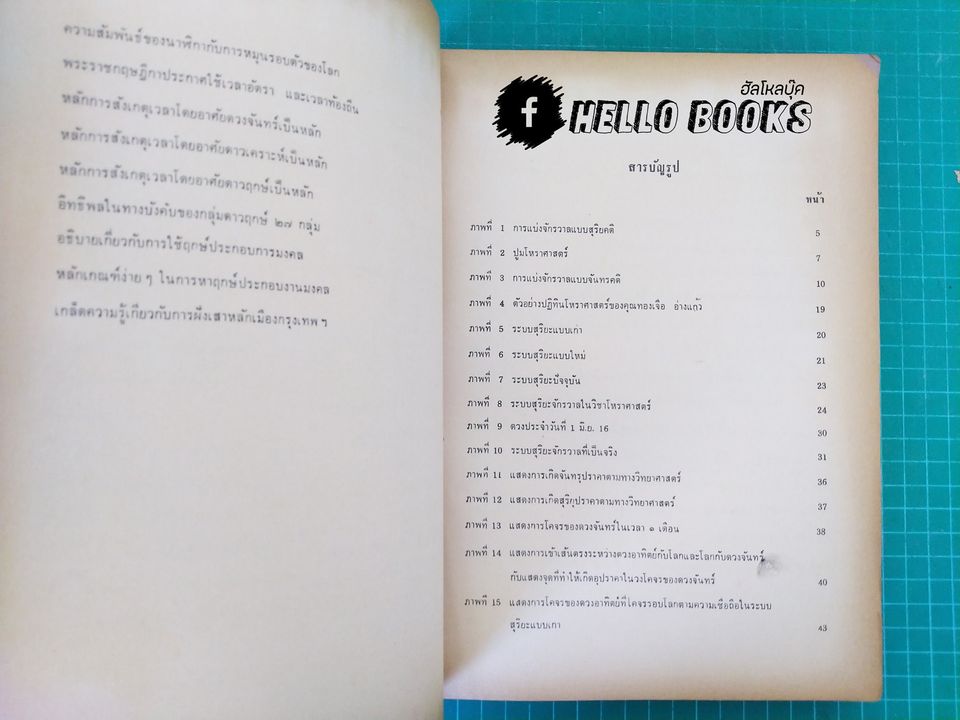 ความสัมพันธ์ของนาฬิกากับการหมุนรอบตัวของโลก
พระราชกฤษฎีกาประกาศใช้เวลาอัตรา และเวลาท้องถิ่น
หลักการสังเกตุเวลาโดยอาศัยดวงจันทร์เป็นหลัก
หลักการสังเกตุเวลาโดยอาศัยดาวเคราะห์เป็นหลัก
หลักการสังเกตุเวลาโดยอาศัยดาวฤกษ์เป็นหลัก
อิทธิพลในทางบังคับของกลุ่มดาวฤกษ์ ๒๗ กลุ่ม
อธิบายเกี่ยวกับการใช้ฤกษ์ประกอบการมงคล
หลักเกณฑ์ง่าย ๆ ในการหาฤกษ์ประกอบงานมงคล
เกล็ดความรู้เกี่ยวกับการฝังเสาหลักเมืองกรุงเทพ ฯ
ฮัลโหลบุ๊ค
f HELLO BOOKS
สารบัญรูป
หน้า
ภาพที่ 1 การแบ่งจักรวาลแบบสุริยคติ 5
ภาพที่ 2 ปูมโหราศาสตร์ 7
ภาพที่ 3 การแบ่งจักรวาลแบบจันทรคติ 10
ภาพที่ 4 ตัวอย่างปฏิทินโหราศาสตร์ของคุณทองเจือ อ่างแก้ว 19
ภาพที่ 5 ระบบสุริยะแบบเก่า 20
ภาพที่ 6 ระบบสุริยะแบบใหม่ 21
ภาพที่ 7 ระบบสุริยะปัจจุบัน 23
ภาพที่ 8 ระบบสุริยะจักรวาลในวิชาโหราศาสตร์ 24
ภาพที่ 9 ดวงประจำวันที่ 1 มิ.ย. 16 30
ภาพที่ 10 ระบบสุริยะจักรวาลที่เป็นจริง 31
ภาพที่ 11 แสดงการเกิดจันทรุปราคาตามทางวิทยาศาสตร์ 36
ภาพที่ 12 แสดงการเกิดสุริยุปราคาตามทางวิทยาศาสตร์ 37
ภาพที่ 13 แสดงการโคจรของดวงจันทร์ในเวลา ๑ เดือน 38
ภาพที่ 14 แสดงการเข้าเส้นตรงระหว่างดวงอาทิตย์กับโลกและโลกกับดวงจันทร์
กับแสดงจุดที่ทำให้เกิดอุปราคาในวงโคจรของดวงจันทร์ 40
ภาพที่ 15 แสดงการโคจรของดวงอาทิตย์ที่โคจรรอบโลกตามความเชื่อถือในระบบ
สุริยะแบบเก่า 43